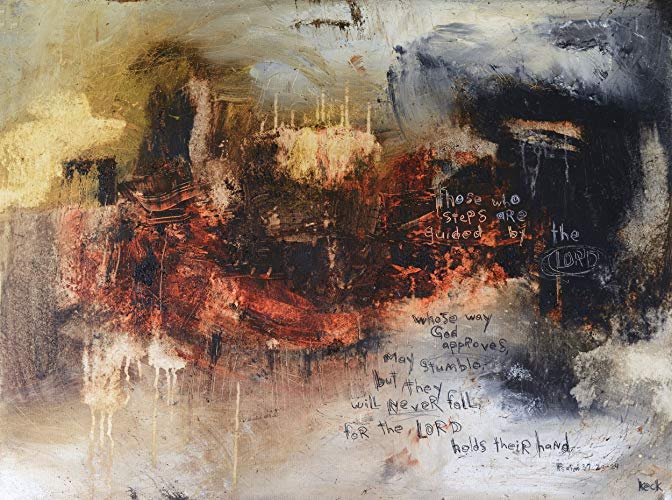 Those who
steps are
guided by the
LORD
whose way
God
approves,
may stumble,
but they
will NEVER fall,
for the LORD
holds their hand
Keck